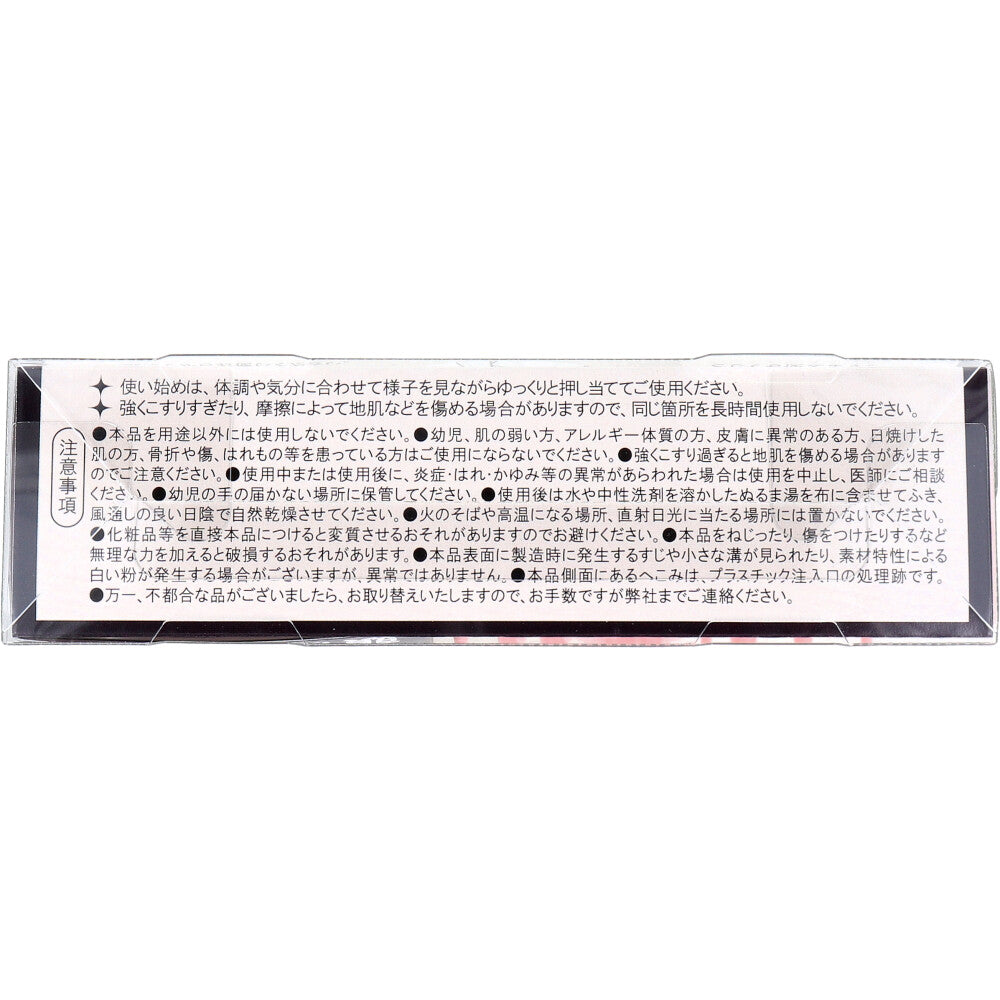 使い始めは、体調や気分に合わせて様子を見ながらゆっくりと押し当ててご使用ください。
強くこすりすぎたり、摩擦によって地肌などを傷める場合がありますので、同じ箇所を長時間使用しないでください。
注意事項
●本品を用途以外には使用しないでください。●幼児、肌の弱い方、アレルギー体質の方、皮膚に異常のある方、日焼けした
肌の方、骨折や傷、はれもの等を患っている方はご使用にならないでください。●強くこすり過ぎると地肌を傷める場合があります
のでご注意ください。●使用中または使用後に、炎症・はれ・かゆみ等の異常があらわれた場合は使用を中止し、医師にご相談
ください。●幼児の手の届かない場所に保管してください。●使用後は水や中性洗剤を溶かしたぬるま湯を布に含ませてふき、
風通しの良い日陰で自然乾燥させてください。●火のそばや高温になる場所、直射日光に当たる場所には置かないでください。
●化粧品等を直接本品につけると変質させるおそれがありますのでお避けください。●本品をねじったり、傷をつけたりするなど
無理な力を加えると破損するおそれがあります。●本品表面に製造時に発生するすじや小さな溝が見られたり、素材特性による
白い粉が発生する場合がございますが、異常ではありません。●本品側面にあるへこみは、プラスチック注入口の処理跡です。
●万一、不都合な品がございましたら、お取り替えいたしますので、お手数ですが弊社までご連絡ください。